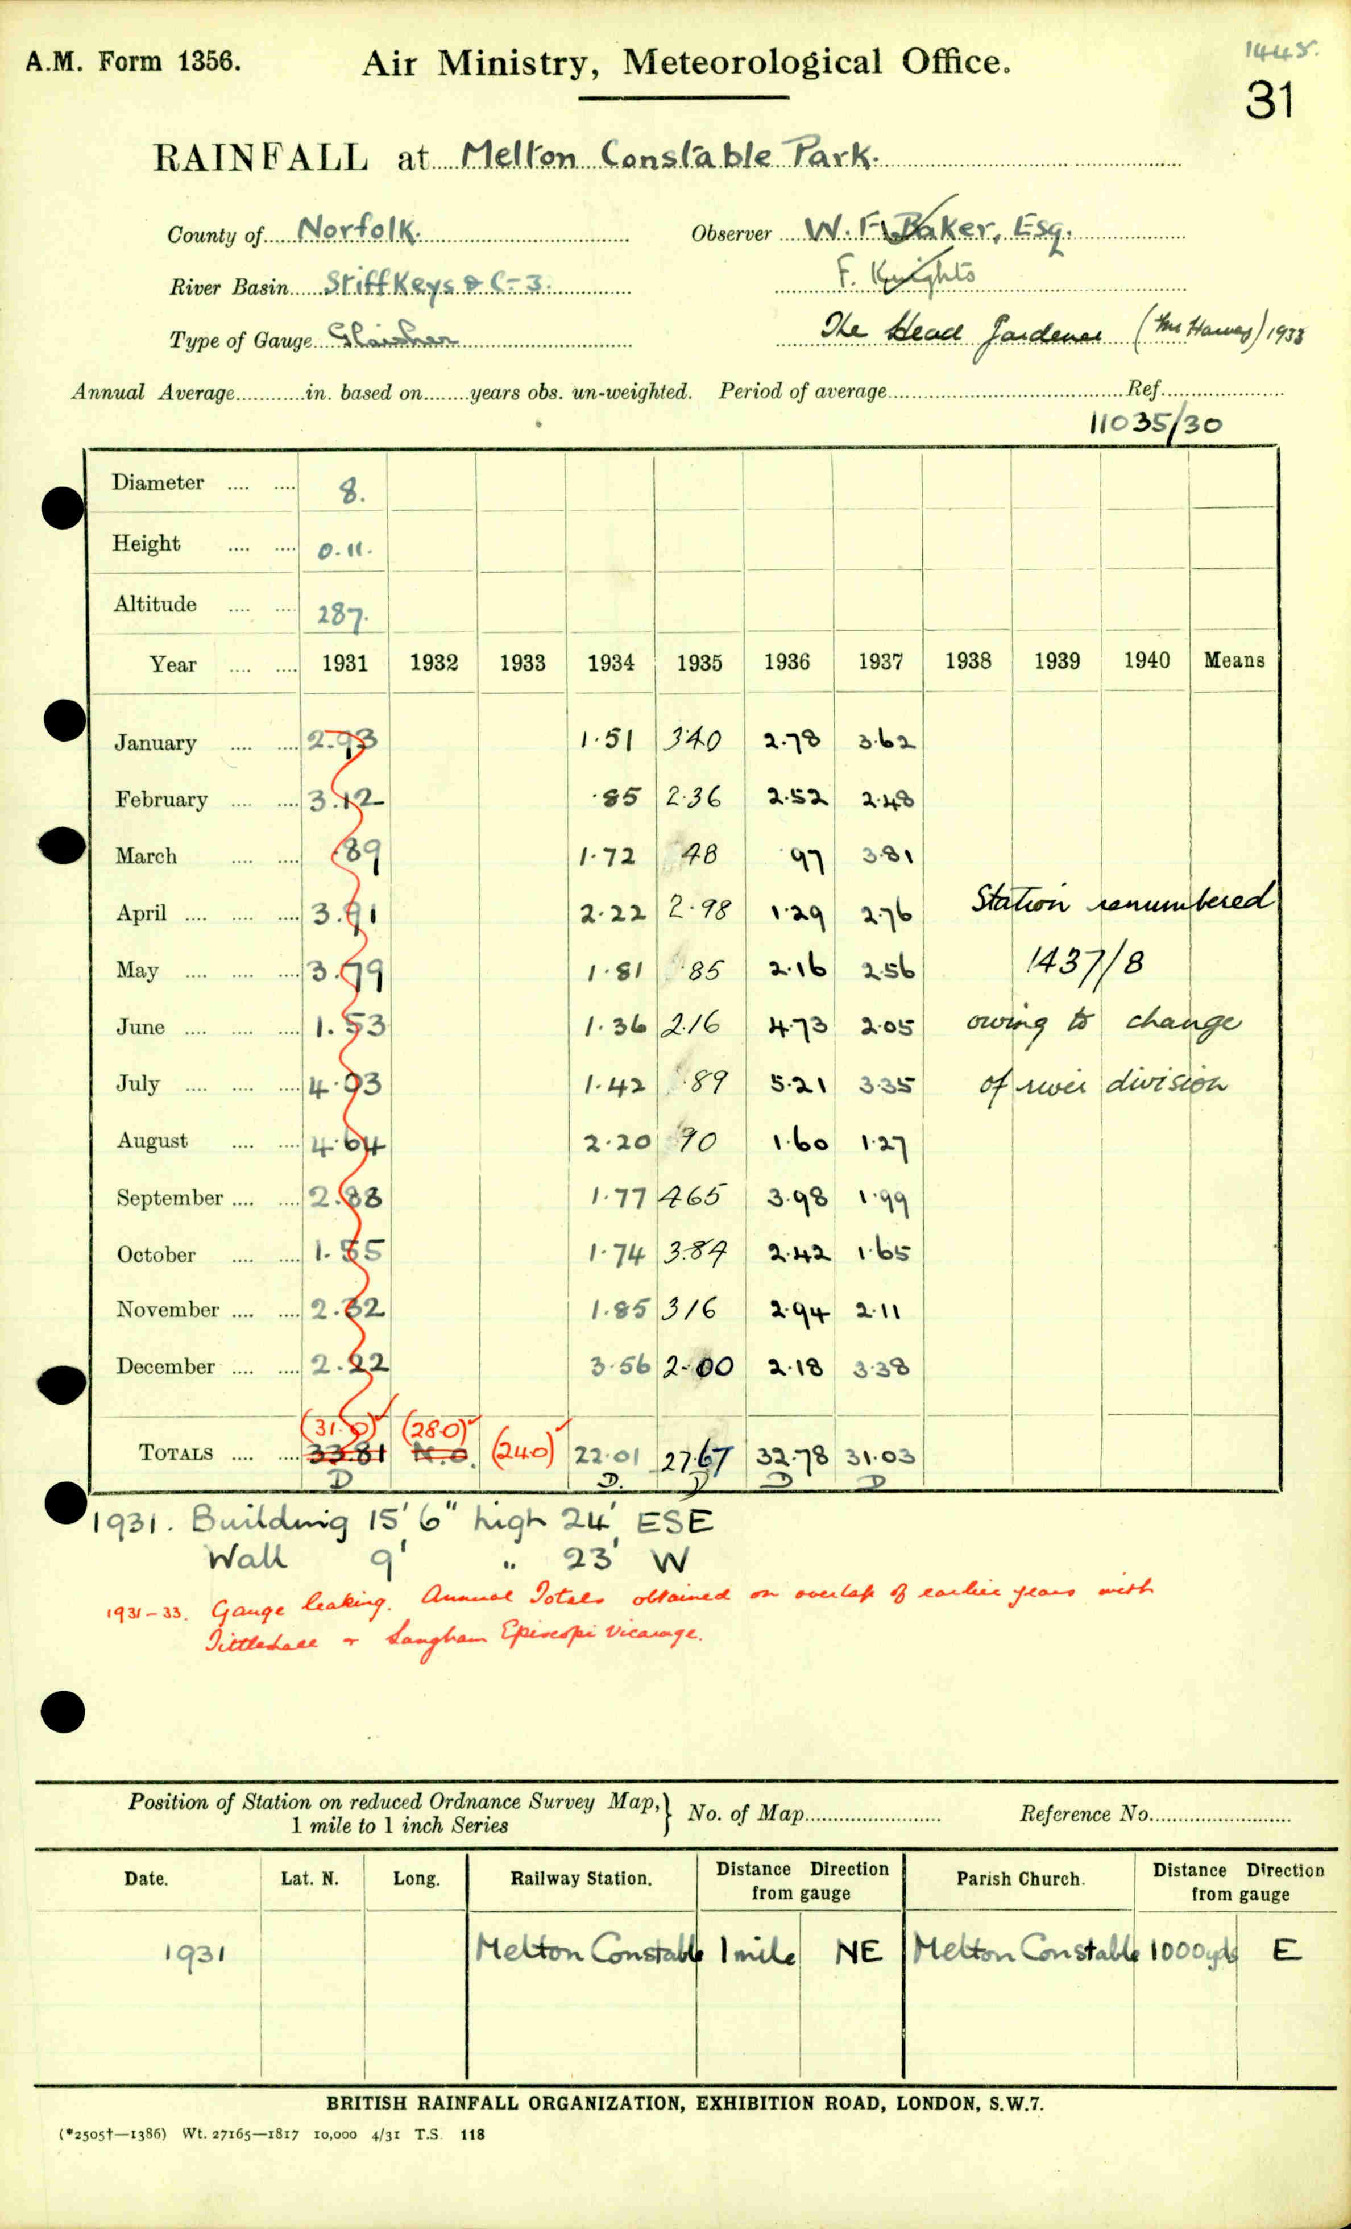 1445.
A.M. Form 1356. Air Ministry, Meteorological Office.
31
RAINFALL at Melton Constable Park.
County of Norfolk. Observer W. F. Baker, Esq.
River Basin Stiffkey & C-3. F. Knights
Type of Gauge Glaisher The Head Gardener (Mr Harvey) 1938
Annual Average in. based on years obs. un-weighted. Period of average Ref.
11035/30
Diameter 8.
Height 0.11.
Altitude 287.
Year 1931 1932 1933 1934 1935 1936 1937 1938 1939 1940 Means
January 2.93 1.51 3.40 2.78 3.62
February 3.12 .85 2.36 2.52 2.48
March .89 1.72 48 97 3.81
April 3.91 2.22 2.98 1.29 2.76 Station renumbered
May 3.79 1.81 .85 2.16 2.56 1437/8
June 1.53 1.36 2.16 4.73 2.05 owing to change
July 4.03 1.42 .89 5.21 3.35 of river division
August 4.64 2.20 90 1.60 1.27
September 2.88 1.77 4.65 3.98 1.99
October 1.55 1.74 3.84 2.42 1.65
November 2.32 1.85 3.16 2.94 2.11
December 2.22 3.56 2.00 2.18 3.38
(31.0) (28.0)
TOTALS 33.81 N.O. (24.0) 22.01 27.67 32.78 31.03
D D. D D D
1931. Building 15' 6" high 24' ESE
Wall 9' " 23' W
1931-33. Gauge leaking. Annual Totals obtained on overlap of earlier years with
Tittleshall & Langham Episcopi Vicarage.
Position of Station on reduced Ordnance Survey Map, 1 mile to 1 inch Series } No. of Map Reference No.
Date. Lat. N. Long. Railway Station. Distance Direction from gauge Parish Church. Distance Direction from gauge
1931 Melton Constable 1 mile NE Melton Constable 1000 yds E
BRITISH RAINFALL ORGANIZATION, EXHIBITION ROAD, LONDON, S.W.7.
(*2505†—1386) Wt. 27165—1817 10,000 4/31 T.S. 118